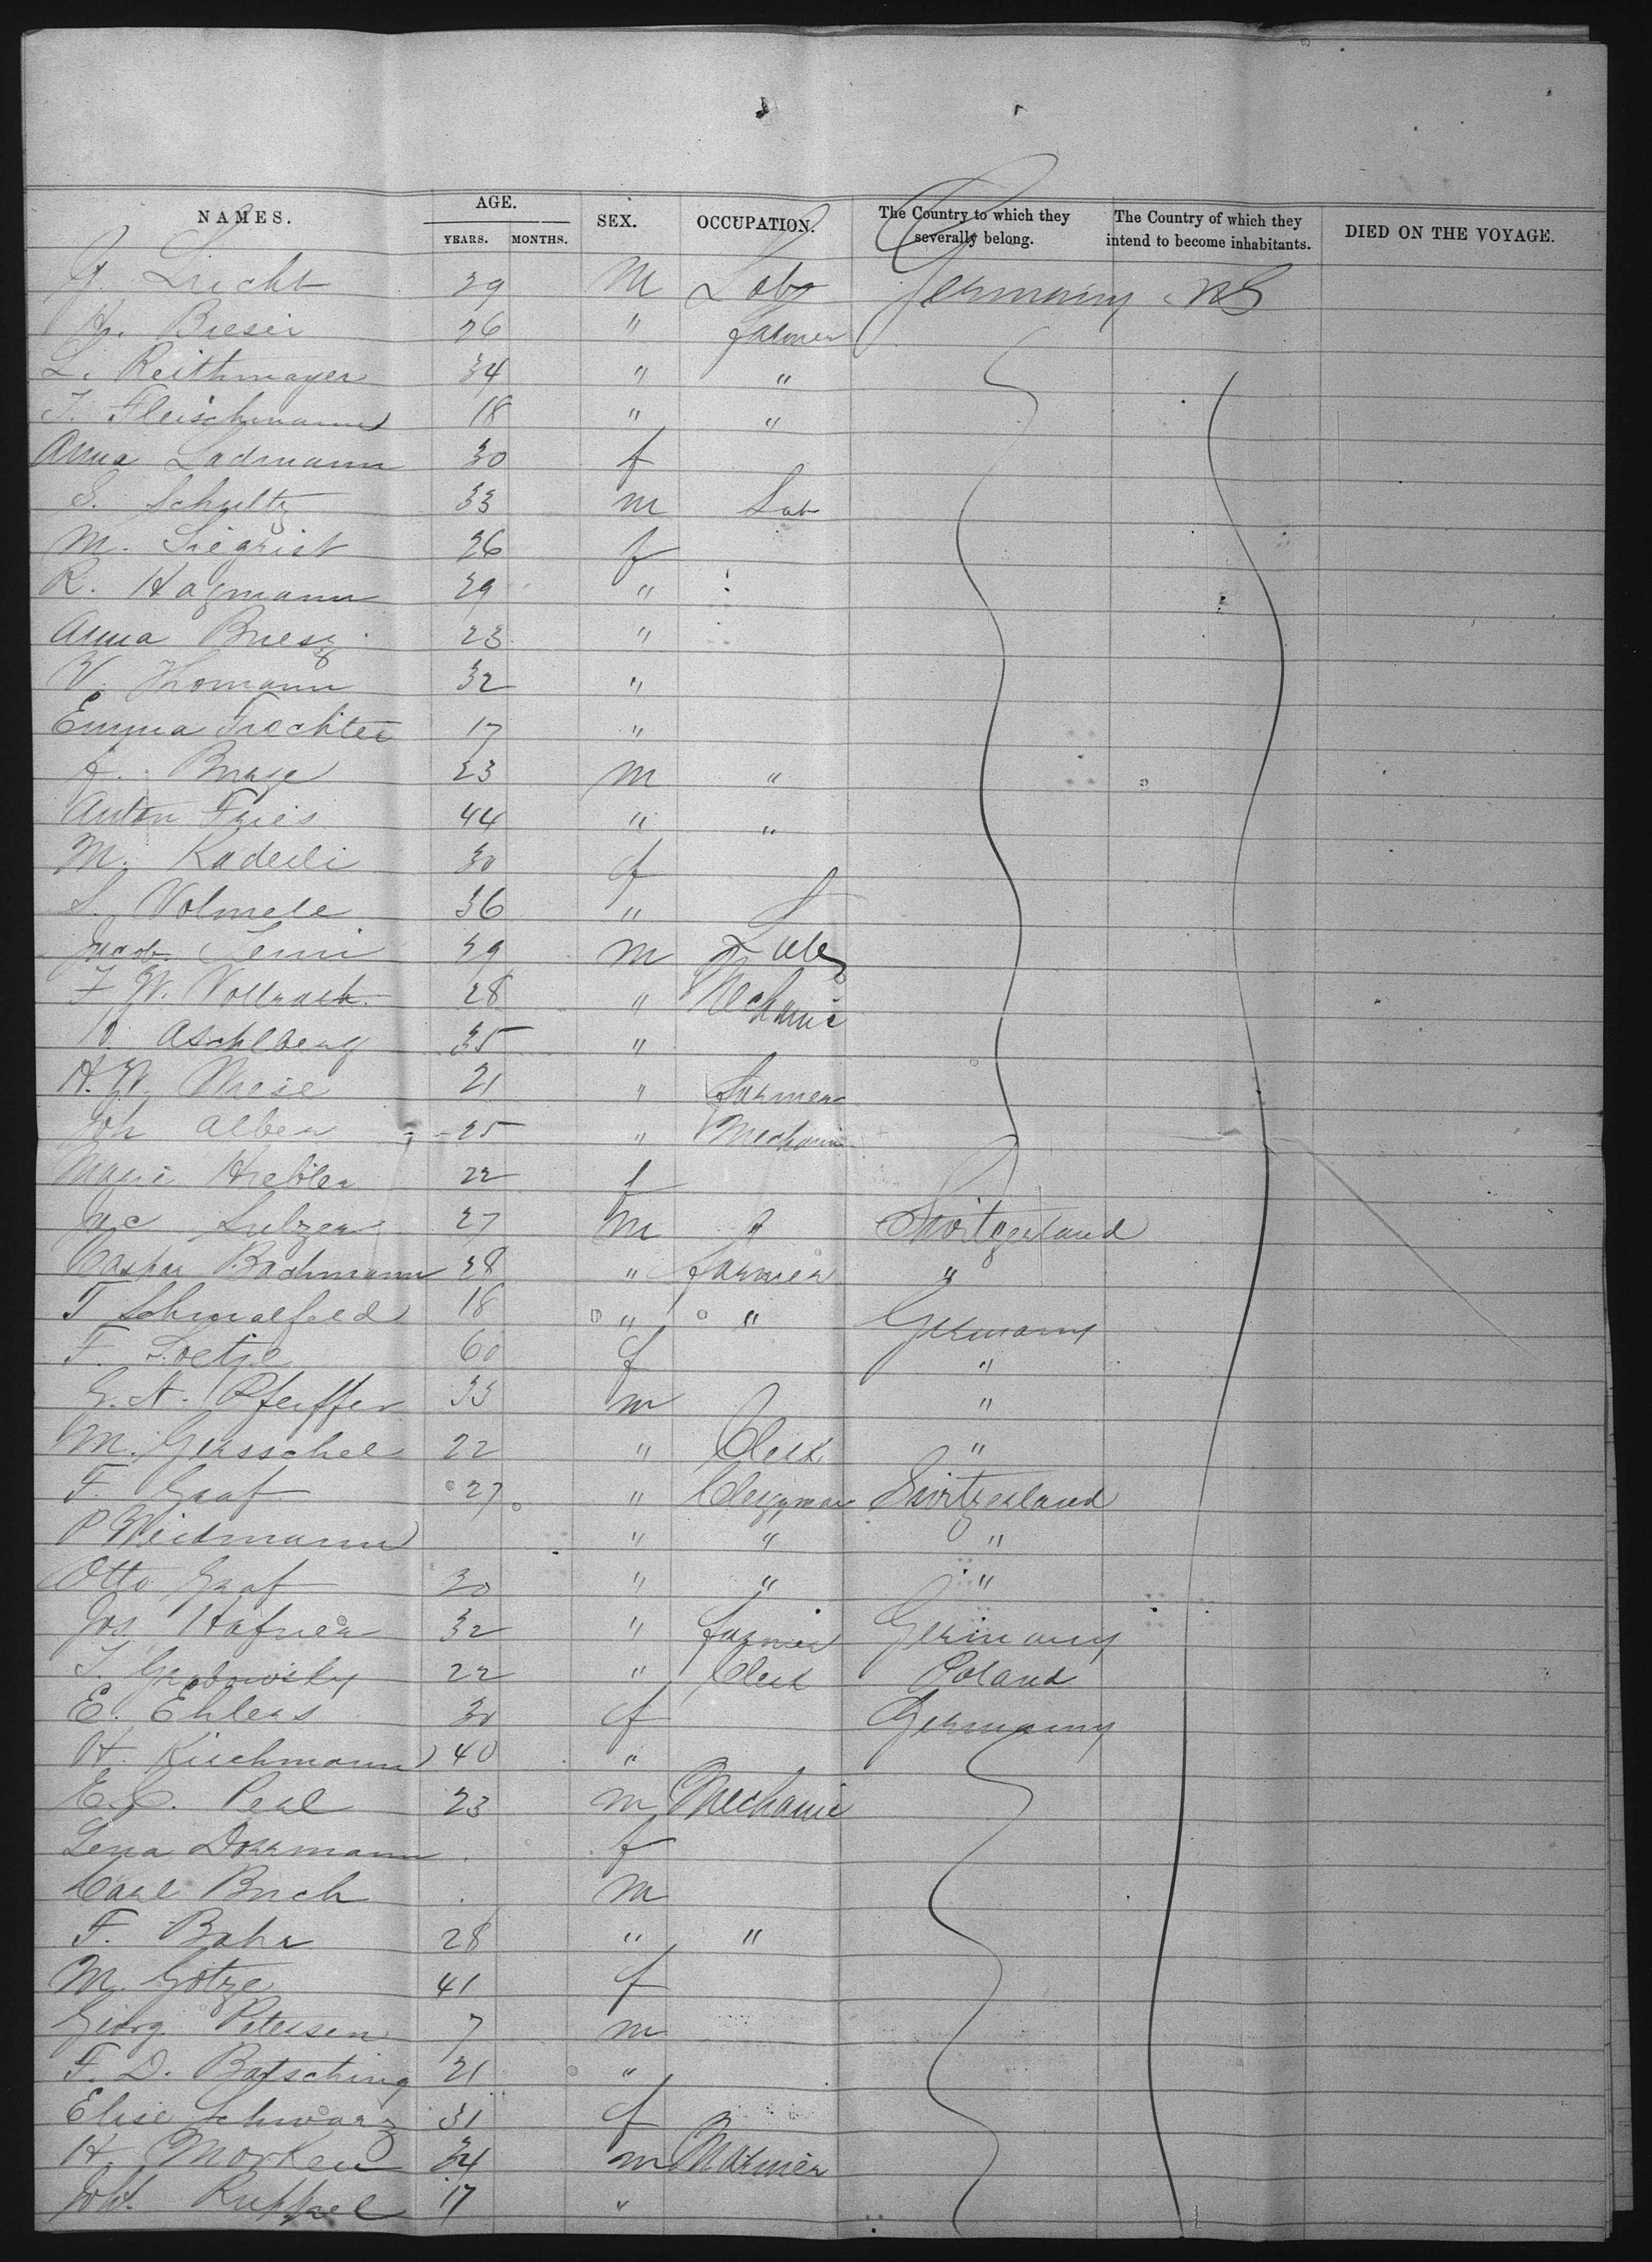 NAMES. AGE. SEX. OCCUPATION. The Country to which they severally belong. The Country of which they intend to become inhabitants. DIED ON THE VOYAGE.
YEARS. MONTHS.
G. Licht 29 M Lab Germany US
H. Bieser 26 " farmer
L. Reithmayer 34 " "
J. Fleischmann 18 " "
Anna Ladmann 30 f
S. Schultz 33 m Lab
M. Siegrist 26 f
R. Hagmann 29 "
Anna Buesz 23 "
V. Thomann 32 "
Emma Trachter 17 "
f. Buage 23 M "
Anton Fries 44 " "
M. Kaderli 30 f
S. Volmele 36 "
Jacob 29 m Lab
F. W. Vollrath 28 " Mechanic
Aschlberg 35 "
H. W. Wiese 21 " farmer
Joh Alber 25 " Mechanic
Marie Hiebler 22 f
Jac Sulzer 27 m " Switzerland
Caspar Bachmann 28 " farmer "
T Schmalfeld 18 " " Germany
F. Loetje 60 f "
G. A. Pfeiffer 33 m "
M. Gersschel 22 " Clerk "
F. Graf 27 " Clergyman Switzerland
P Weidmann " " "
Otto Graf 30 " " "
Jos. Hafner 32 " farmer Germany
J. Grabowsky 22 " Clerk Poland
E. Ehlers 30 f Germany
H. Kirchmann 40 "
E. C. Perl 23 m Mechanic
Lena Dormann f
Carl Buch m
F. Bahr 28 " "
M. Götze 41 f
Georg Petersen 7 m
F. D. Batsching 21 "
Elise Schwarz 31 f
H. Morken 34 m Mariner
Joh. Ruppel 17 "